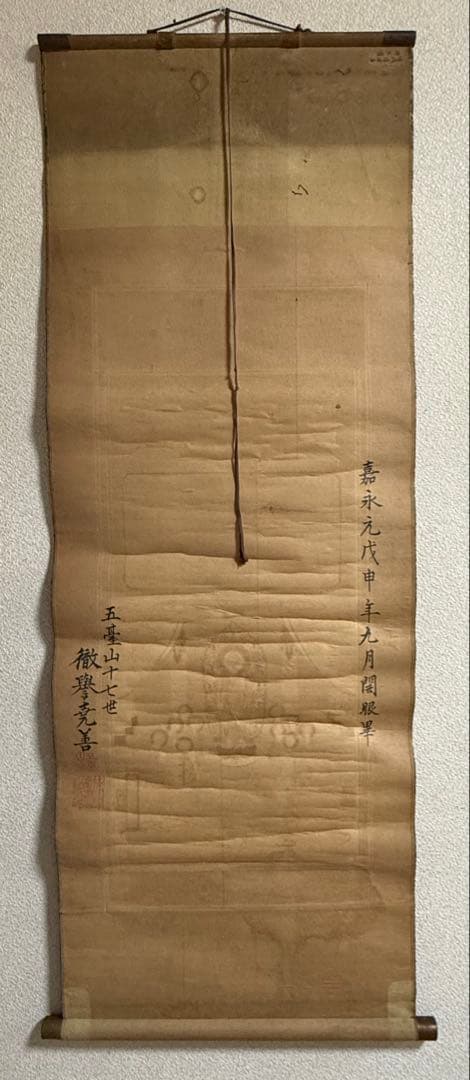 嘉永元戊申年九月開眼畢
五臺山十七世
徹譽堯善